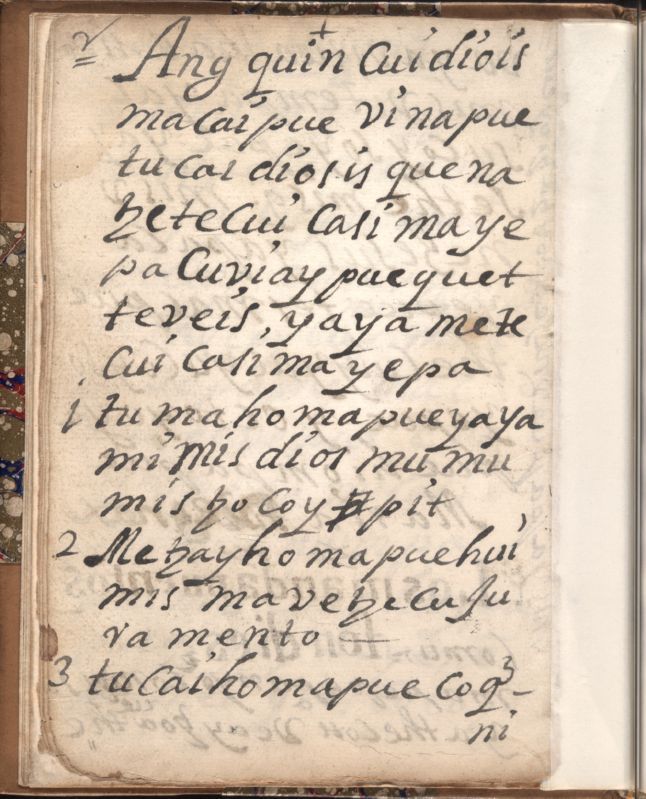 Any quin Cuidiois
macaipue vinapue
tucai diosis quena
hetecui Casi maye
pa Cuviay puequet
teveis, yaya mete
Cui Casi mayepa
1 tu mahomapueyaya
mi mis dios mumu
mis hocoy pit
2 Mehayhomapuehui
mis mavehecuju
ramento
3 tucaihomapue coq̃-
ni